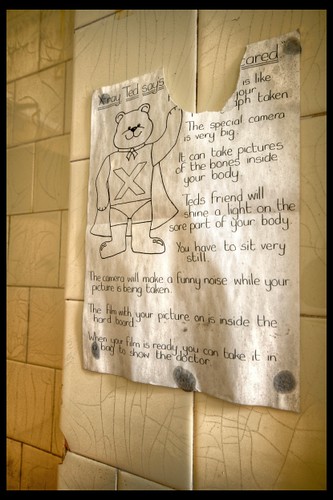 Xray Ted says
cared
is like
your
ph taken.
The special camera
is very big.
It can take pictures
of the bones inside
your body
Teds friend will
shine a light on the
sore part of your body.
You have to sit very
still.
X
The camera will make a funny noise while your
picture is being taken.
The film with your picture on is inside the
hard board.
When your film is ready you can take it in
a bag to show the doctor